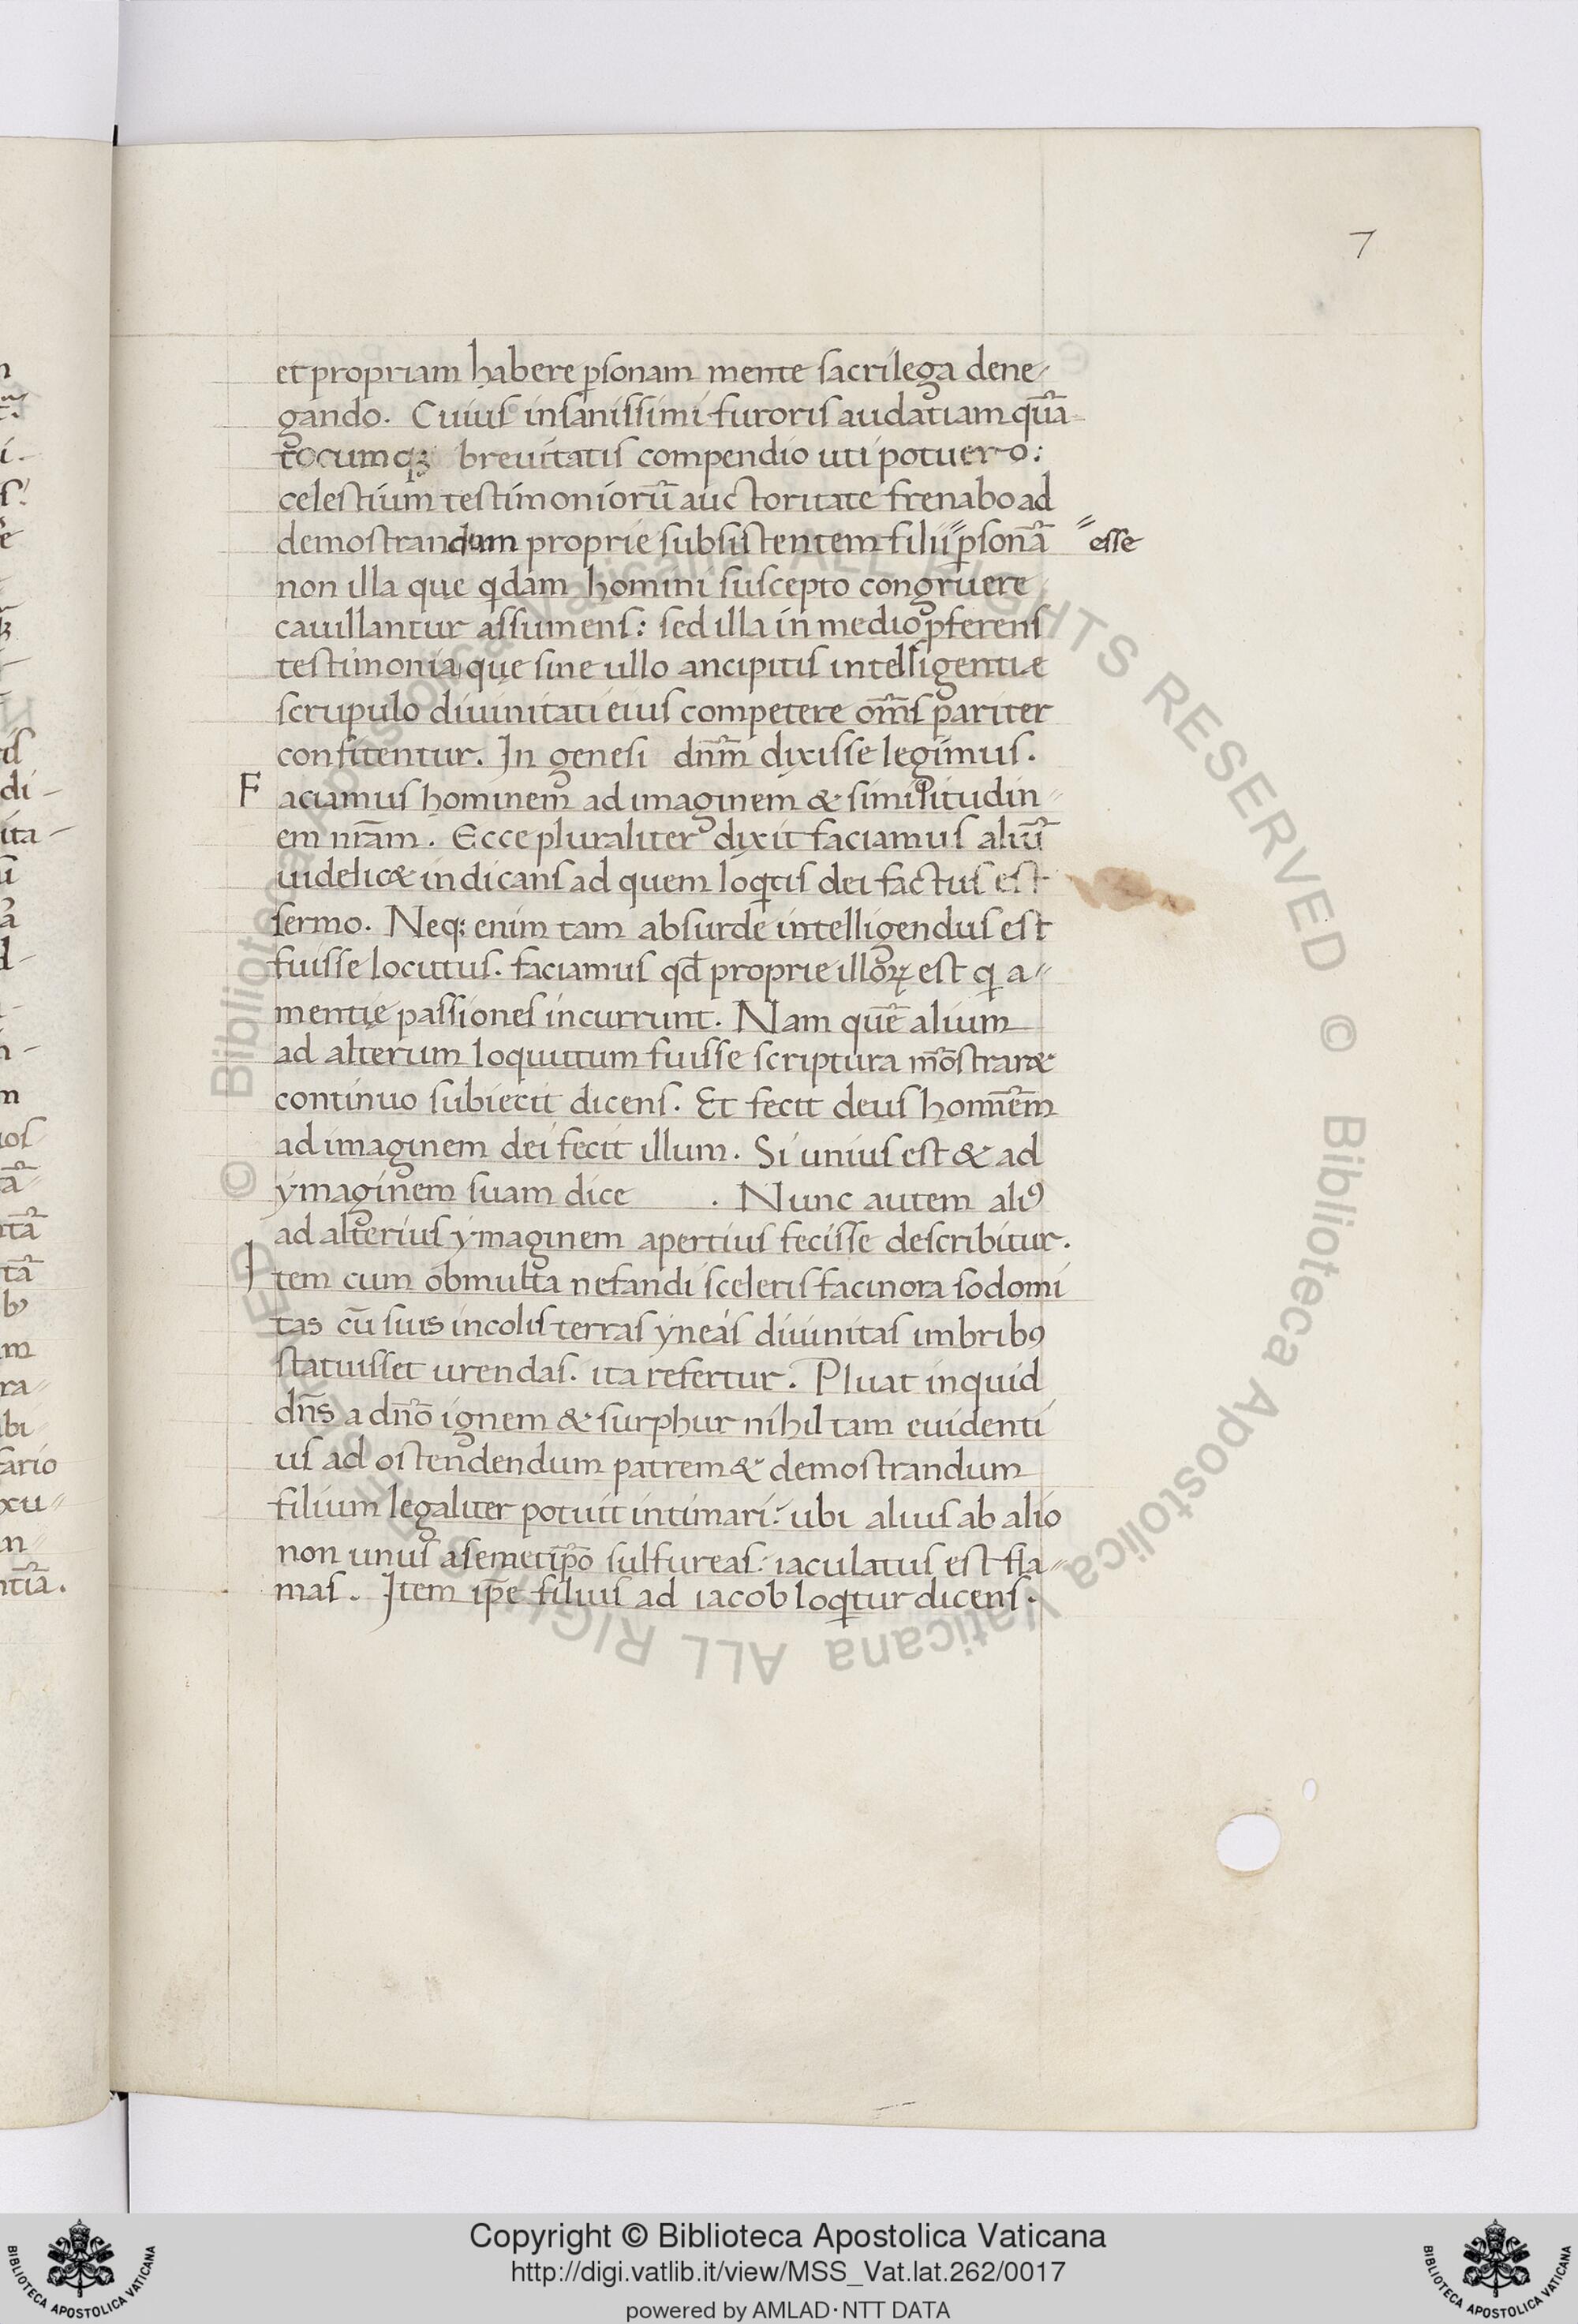 7
et propriam habere p̱sonam mente sacrilega dene⸗
gando. Cuius insanissimi furoris audatiam quā
tocumqꝫ breuitatis compendio uti potuero:
celestium testimoniorū auctoritate frenabo ad
demostrandum proprie subsistentem filii⸗ ꝑsonā ⸗esse
non illa que qdam homini suscepto congruere
cauillantur assumens: sed illa in medio ꝓferens
testimonia que sine ullo ancipitis intelligentiæ
scrupulo diuinitati eius competere om̄s pariter
confitentur. In genesi dn̄m dixisse legimus.
Faciamus hominem ad imaginem & similitudin⸗
em nr̄am. Ecce pluraliter dixit faciamus aliū
uidelic& indicans ad quem loqtis dei factus est
sermo. Neq: enim tam absurde intelligendus est
fuisse locutus. faciamus qđ proprie illoꝝ est q a⸗
mentię passiones incurrunt. Nam quē alium
ad alterum loquutum fuisse scriptura mōstrar&
continuo subiecit dicens. Et fecit deus hominēm
ad imaginem dei fecit illum. Si unius est & ad
ymaginem suam dice . Nunc autem aliꝰ
ad alterius ymaginem apertius fecisse describitur.
Item cum ob multa nefandi sceleris facinora sodomi
tas cū suis incolis terras yneas diuinitas imbribꝰ
statuisset urendas. ita refertur. Pluat inquid
dn̄s a dn̄o ignem & surphur nihil tam euidenti
us ad ostendendum patrem & demostrandum
filium legaliter potuit intimari: ubi alius ab alio
non unus a semetip̄o sulfureas: iaculatus est fla⸗
mas. Item ip̄e filius ad iacob loqtur dicens.
© Biblioteca Apostolica Vaticana ALL RIGHTS RESERVED
© Biblioteca Apostolica Vaticana ALL RIGHTS RESERVED
BIBLIOTECA APOSTOLICA VATICANA
Copyright © Biblioteca Apostolica Vaticana
http://digi.vatlib.it/view/MSS_Vat.lat.262/0017
powered by AMLAD·NTT DATA
BIBLIOTECA APOSTOLICA VATICANA